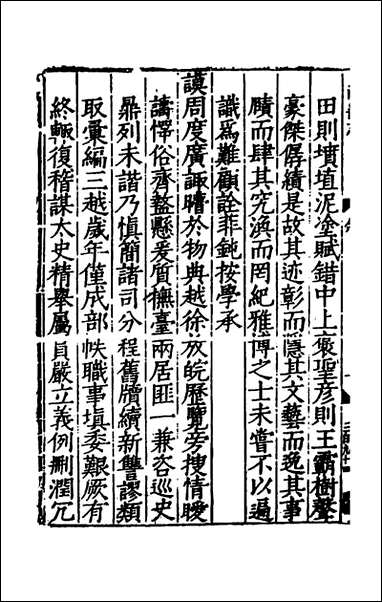 田則墳埴泥塗賦錯中上褒聖彥則王霸樹聲
豪傑孱績是故其迹彰而隱其文藝而逸其事
賾而肆其究渙而罔紀雅博之士未嘗不以遍
識爲難顧詮菲鈍按學承
謨周度廣諏瞻於物典越徐放皖歷覽旁搜情曖
譸懌俗齊盭懸爰質撫臺兩居匪一兼咨巡史
鼎列未諧乃慎簡諸司分程舊牘續新讐謬類
取彙編三越歲年僅成部帙職事塡委艱厥有
終輙復稽謀太史精舉屬員嚴立義例刪潤冗